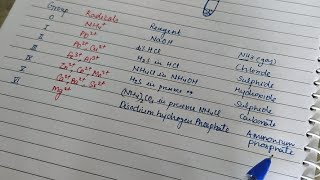 Group Radicals Reagent
0 NH4+ NaOH NH3 (gas)
I Pb2+ dil HCl Chloride
II Pb2+, Cu2+ H2S in HCl Sulphide
III Fe3+, Al3+ NH4Cl in NH4OH Hydroxide
H2S in presence Sulphide
V Ba2+, Sr2+ (NH4)2CO3 in presence NH4Cl Carbonate
VI Mg2+ Disodium hydrogen Phosphate Ammonium
phosphate